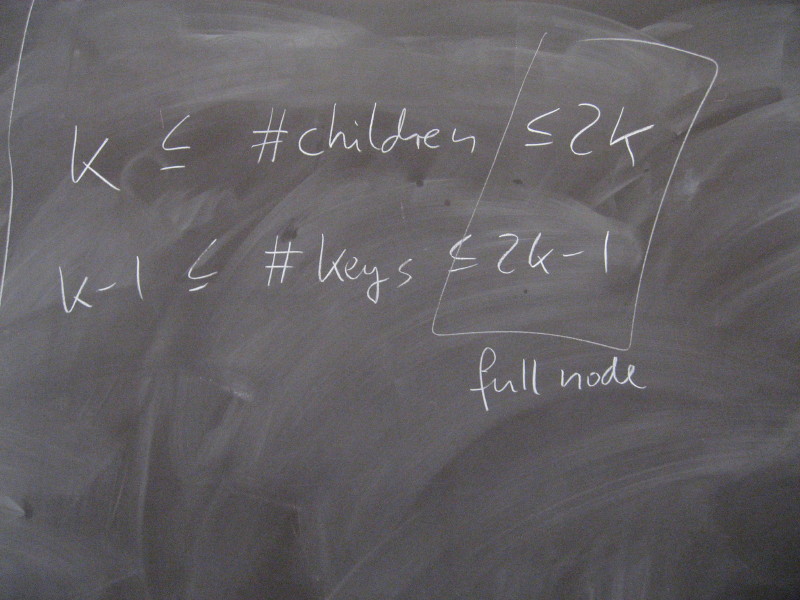 k ≤ #children ≤ 2k
k-1 ≤ # keys ≤ 2k-1
full node